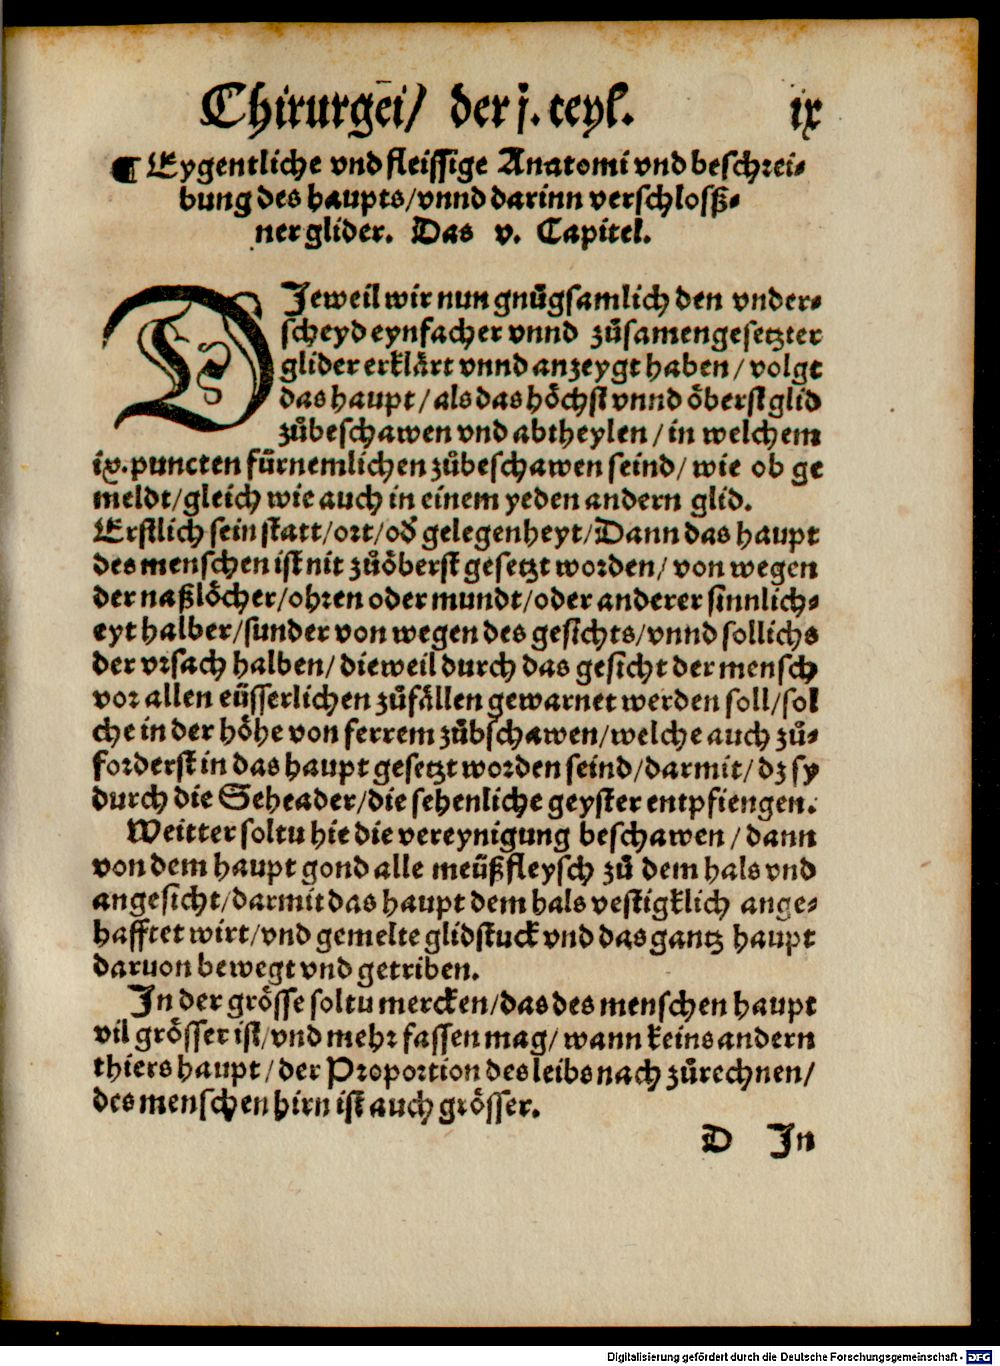 Chirurgei/ der j. teyl. ix
¶ Eygentliche vnd fleissige Anatomi vnd beschrei⸗
bung des haupts/vnnd darinn verschlosß⸗
ner glider. Das v. Capitel.
DJeweil wir nun gnůgsamlich den vnder⸗
scheyd eynfacher vnnd zůsamengesetzter
glider erklärt vnnd anzeygt haben/ volgt
das haupt/ als das höchst vnnd öberst glid
zůbeschawen vnd abtheylen/ in welchem
ix. puncten fürnemlichen zůbeschawen seind/ wie ob ge
meldt/gleich wie auch in einem yeden andern glid.
Erstlich sein statt/ort/od̕ gelegenheyt/Dann das haupt
des menschen ist nit zůöberst gesetzt worden/ von wegen
der naßlöcher/ohren oder mundt/oder anderer sinnlich⸗
eyt halber/sunder von wegen des gesichts/vnnd sollichs
der vrsach halben/ dieweil durch das gesicht der mensch
vor allen eüsserlichen zůfällen gewarnet werden soll/sol
che in der höhe von ferrem zůbschawen/welche auch zů⸗
forderst in das haupt gesetzt worden seind/darmit/ dz sy
durch die Seheader/die sehenliche geyster entpfiengen.
Weitter soltu hie die vereynigung beschawen/ dann
von dem haupt gond alle meüßfleysch zů dem hals vnd
angesicht/darmit das haupt dem hals vestigklich ange⸗
hafftet wirt/vnd gemelte glidstuck vnd das gantz haupt
daruon bewegt vnd getriben.
Jn der grösse soltu mercken/das des menschen haupt
vil grösser ist/vnd mehr fassen mag/ wann keins andern
thiers haupt/ der Proportion des leibs nach zůrechnen/
des menschen hirn ist auch grösser.
D Jn
Digitalisierung gefördert durch die Deutsche Forschungsgemeinschaft - DFG